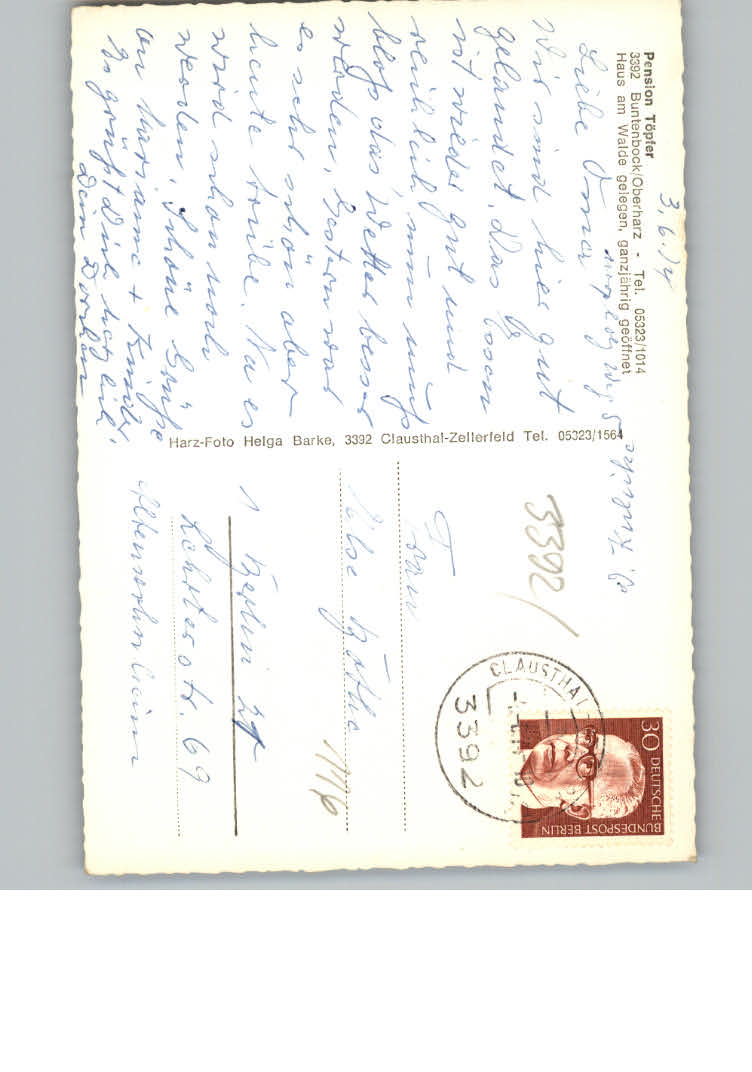 Pension Töpfer
3392 Buntenbock/Oberharz - Tel. 05323/1014
Haus am Walde gelegen, ganzjährig geöffnet
3.6.74
Liebe Oma
Wir sind hier gut
gelandet. Das Essen
ist wieder gut und
reichlich nun muß
bloß das Wetter besser
werden. Gestern war
es sehr schön aber
heute trübe. Na es
wird schon noch
werden. Schöne Grüße
an Marianne + Kinder.
Es grüßt Dich herzlich
Dein
Harz-Foto Helga Barke, 3392 Clausthal-Zellerfeld Tel. 05323/1564
3392
Frau
Else
1 Berlin 21
Lehrterstr. 69
Altenwohnheim
1116
CLAUSTHAL
3392
30 DEUTSCHE
BUNDESPOST BERLIN